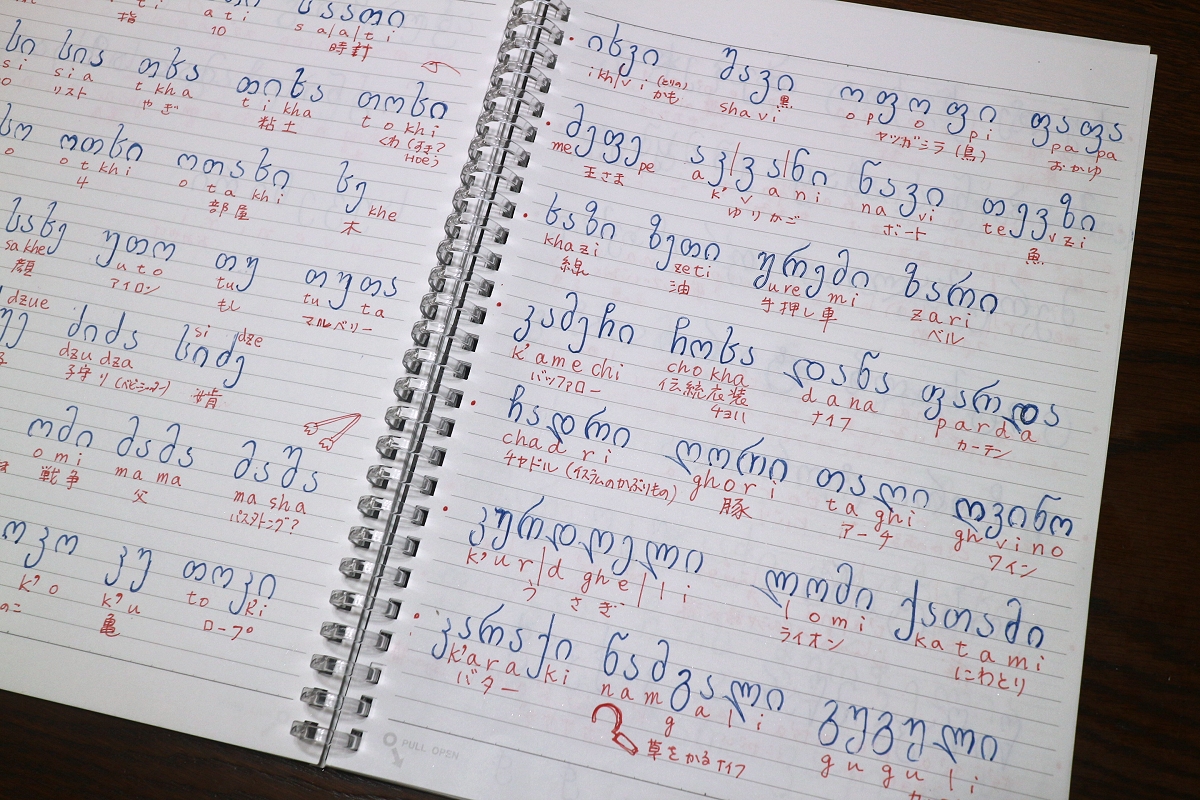 საათი
ti ati salati
指 10 時計
სია თხა თიხა თოხი
si sia tkha tikha tokhi
リスト やぎ 粘土 くわ(すき?
Hoeう
ოთხი ოთახი ხე
o otkhi otakhi khe
4 部屋 木
სახე უთო თუ თუთა
sakhe uto tu tuta
顔 アイロン もし マルベリー
ძიძა სიძე
dzue dzudza si dze
子守り(ベビーシッター) 婿
ომი მამა მაშა
omi mama masha
戦争 父 パスタトング?
კუ თოკი
k'o k'u toki
亀 ロープ
იხვი შავი ოფოფი ფაფა
ikh/vi (とりの)かも shavi 黒 opopi papa
ヤツガシラ(鳥) おかゆ
მეფე აკ/ვა/ნი ნავი თევზი
mepe ak'vani navi tevzi
王さま ゆりかご ボート 魚
ხაზი ზეთი ურემი ზარი
khazi zeti uremi zari
線 油 手押し車 ベル
კამეჩი ჩოხა დანა ფარდა
k'amechi chokha dana parda
バッファロー 伝統衣装 ナイフ カーテン
チョハ
ჩადრი ღორი თაღი ღვინო
chadri ghori taghi ghvino
チャドル(イスラムのかぶりもの) 豚 アーチ ワイン
კურდღელი ლომი ქათამი
k'ur/d ghe/li lomi katami
うさぎ ライオン にわとり
კარაქი ნამგალი გუგული
k'araki namgali guguli
バター 草をかるナイフ
PULL OPEN